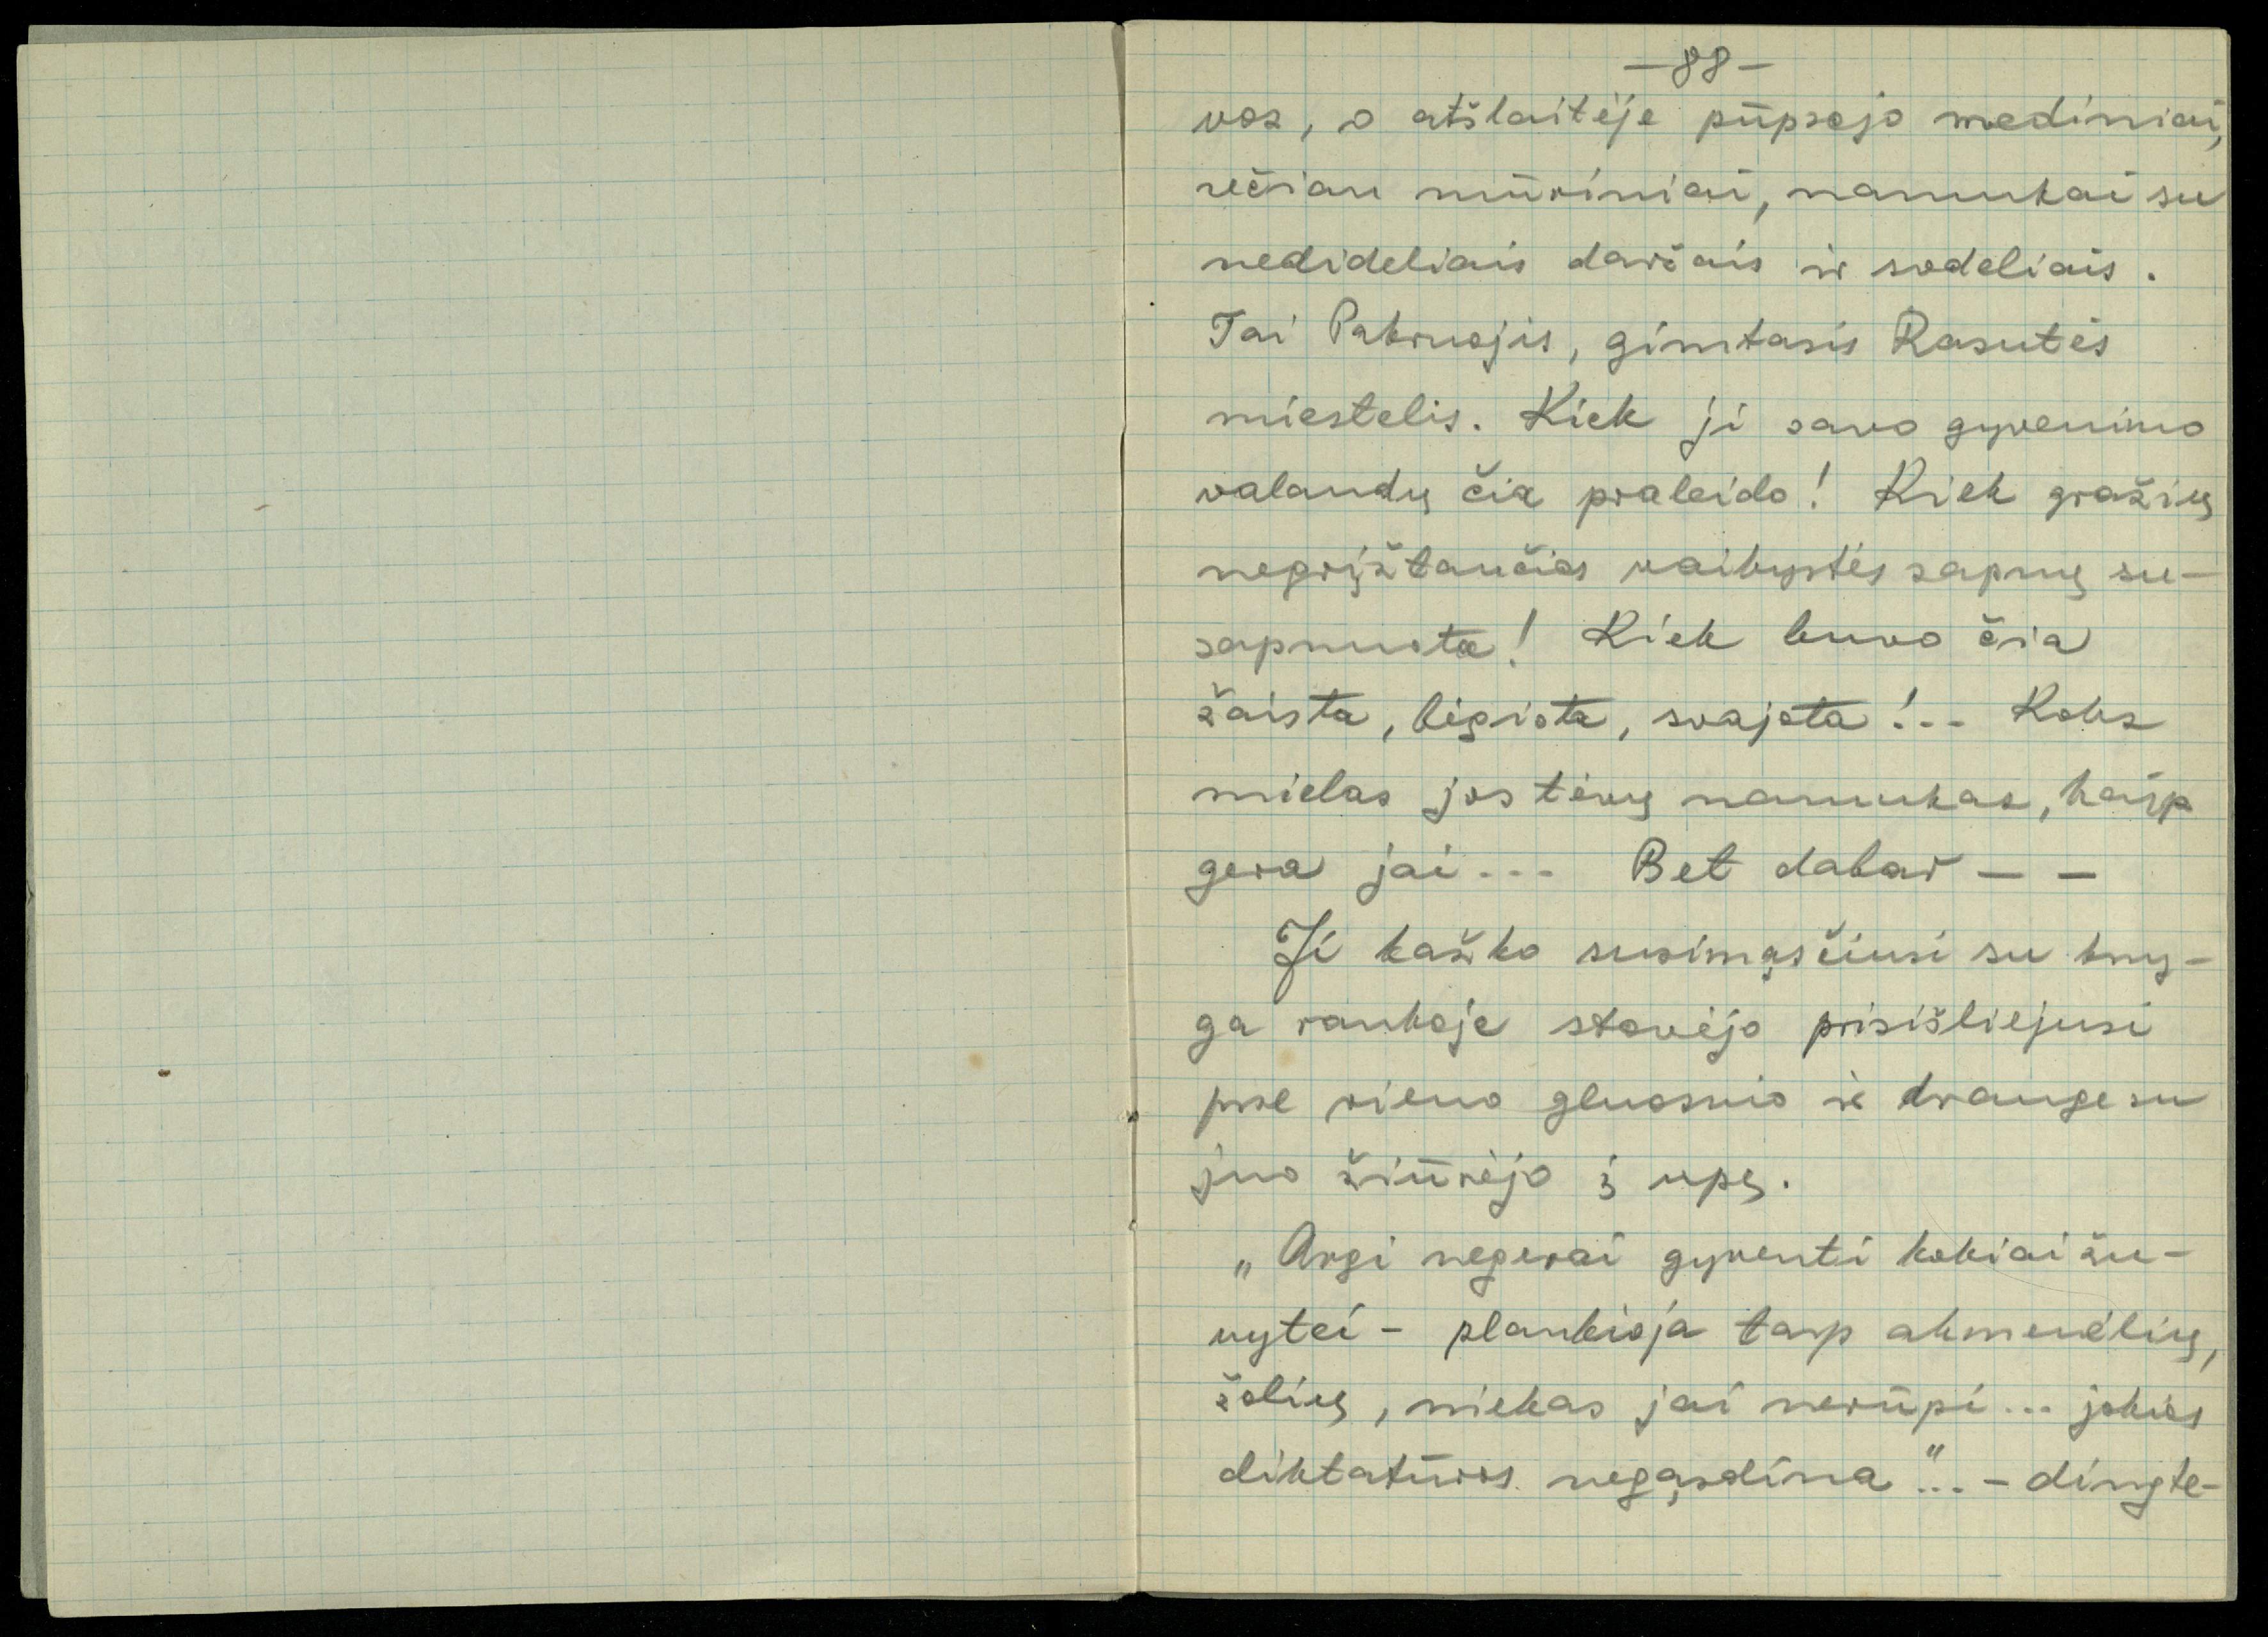 —88—
vos, o atšlaitėje pūpsojo mediniai,
rečiau mūriniai, namukai su
nedideliais daržais ir sodeliais.
Tai Pakruojis, gimtasis Rasutės
miestelis. Kiek ji savo gyvenimo
valandų čia praleido! Kiek gražių
negrįžtančios vaikystės sapnų su-
sapnuota! Kiek buvo čia
žaista, bėgiota, svajota!.. Koks
mielas jos tėvų namukas, kaip
gera jai... Bet dabar — —
Ji kažko susimąsčiusi su kny-
ga rankoje stovėjo prisišliejusi
prie vieno gluosnio ir drauge su
juo žiūrėjo į upę.
„Argi negerai gyventi kokiai žu-
vytei - plaukioja tarp akmenėlių,
žolių, niekas jai nerūpi... jokios
diktatūros negąsdina"... - dingte-